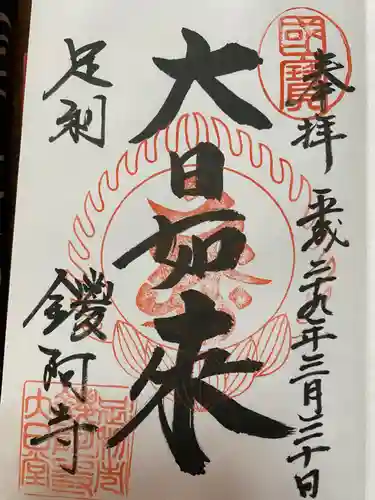 國寳
奉拝
平成二十九年三月二十日
大日如來
足利
鑁阿寺